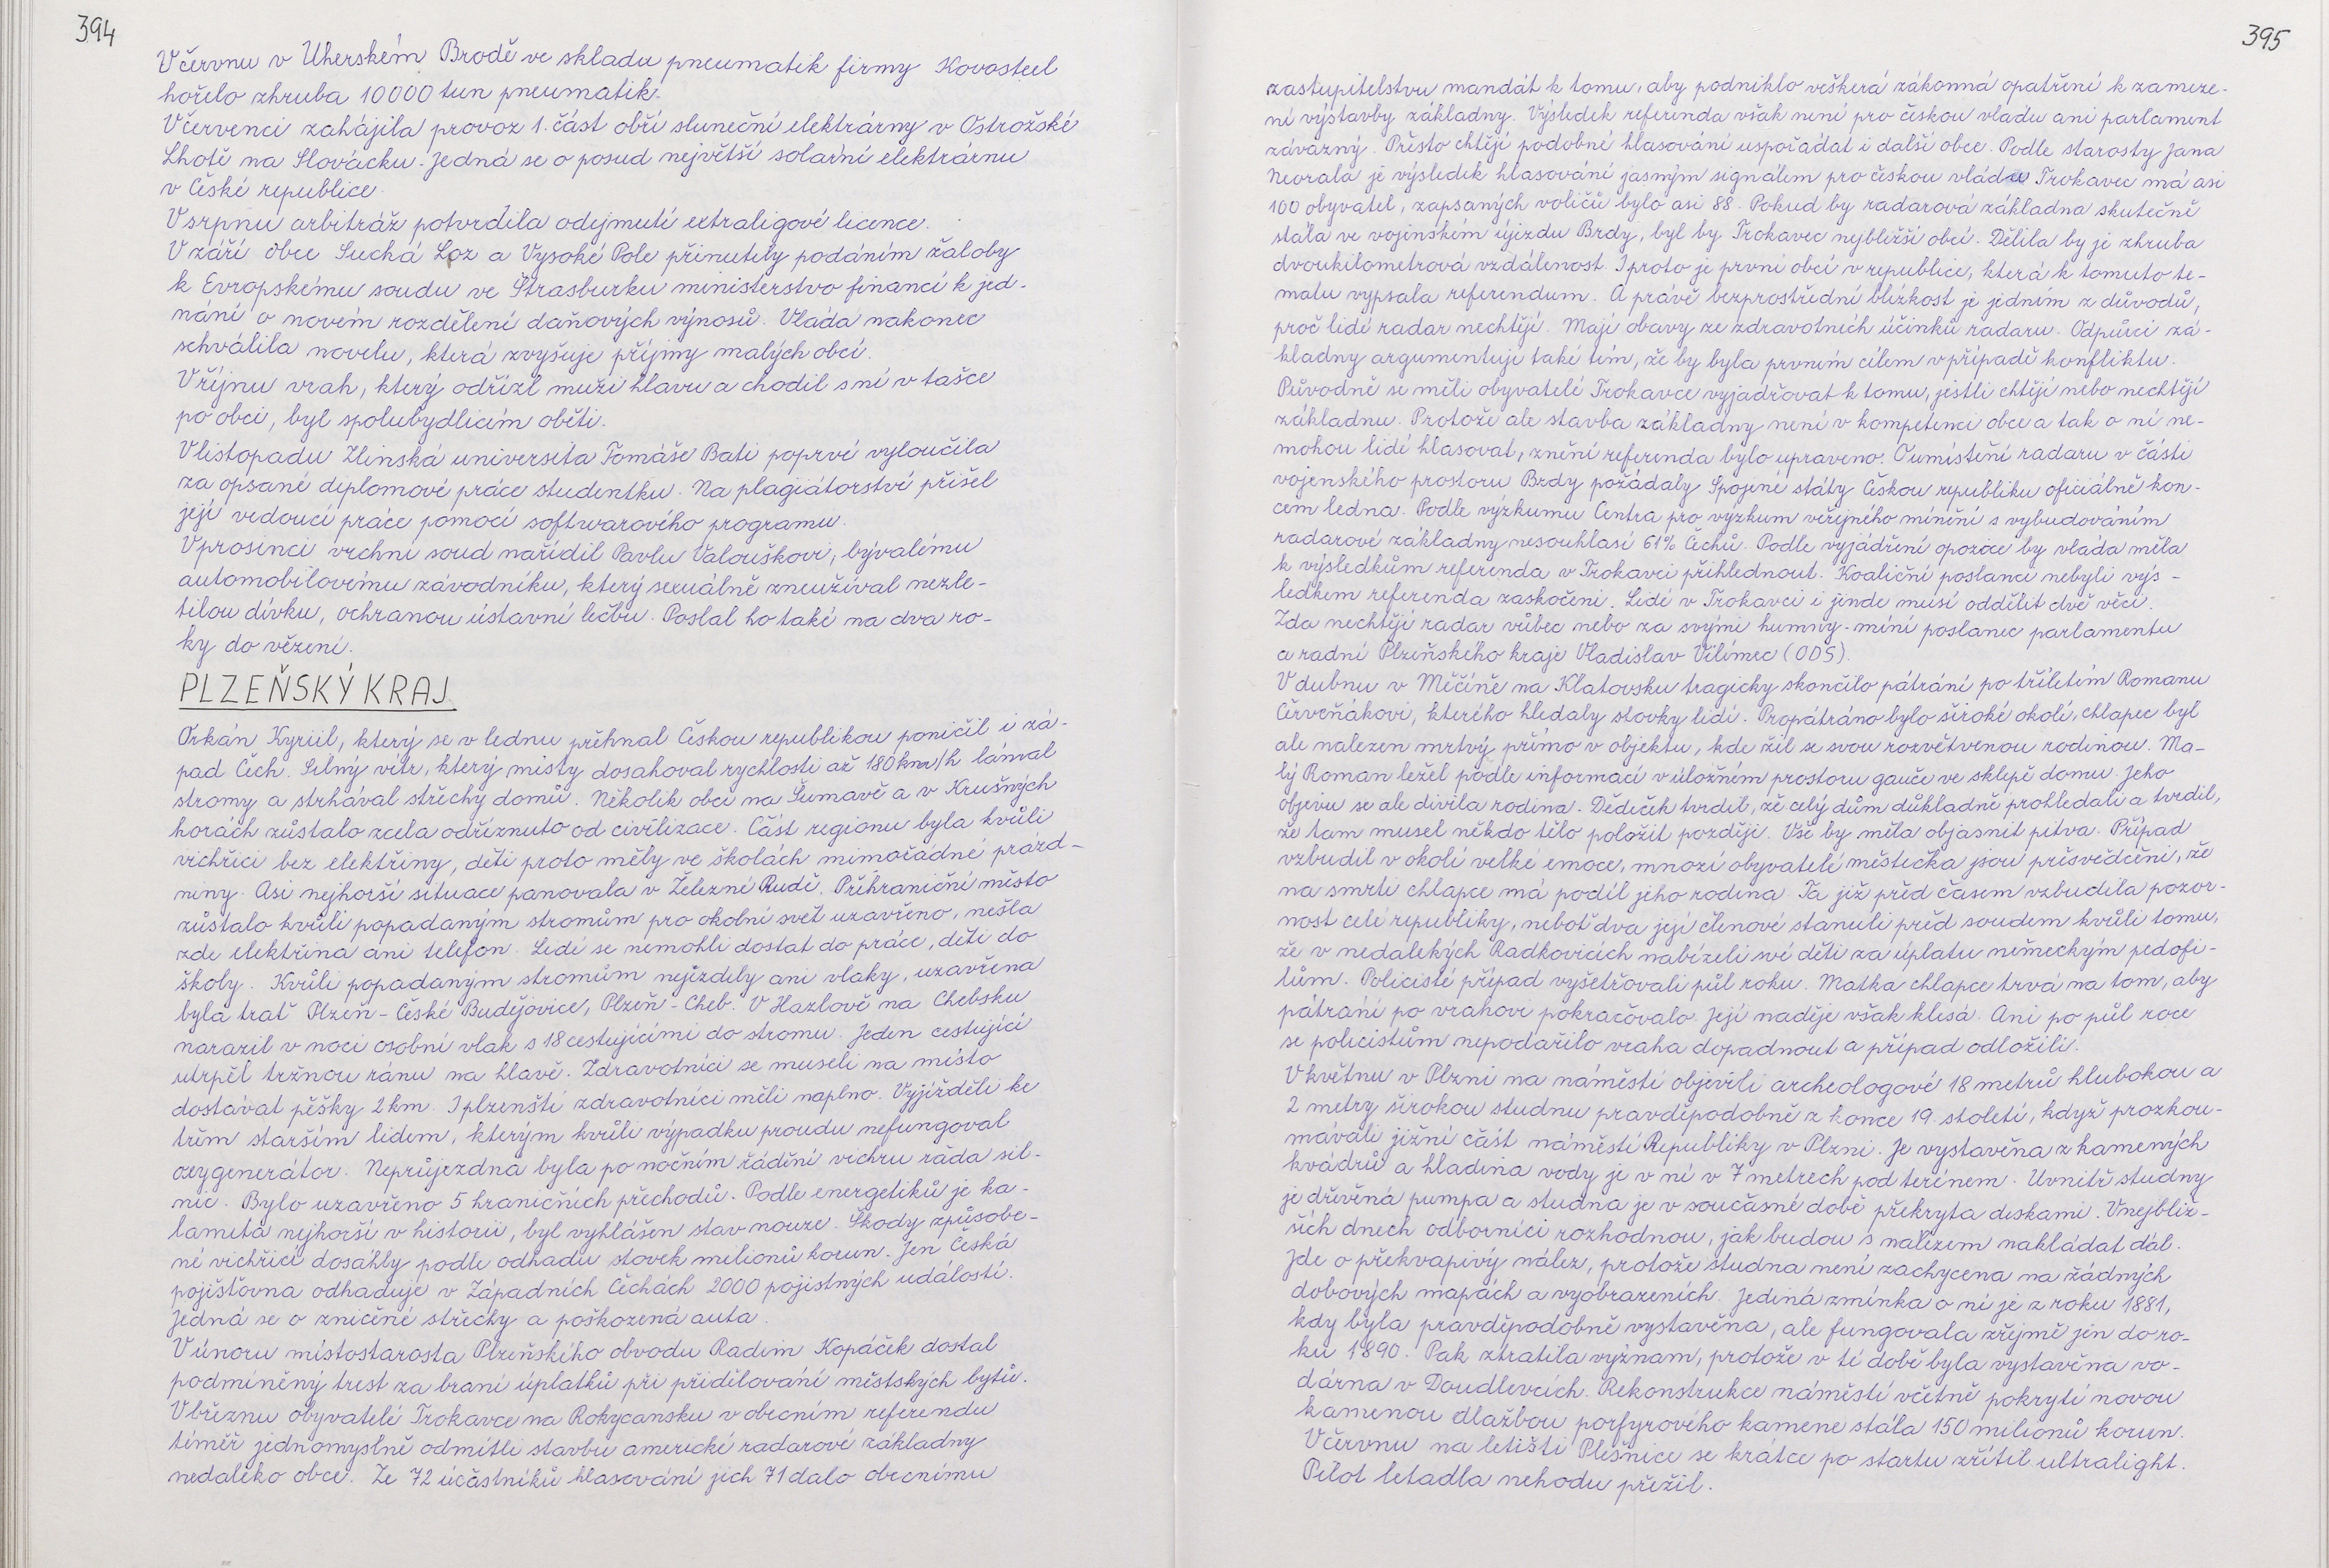 394
V červnu v Uherském Brodě ve skladu pneumatik firmy Kovosteel
hořelo zhruba 10000 tun pneumatik.
V červenci zahájila provoz 1. část obří sluneční elektrárny v Ostrožské
Lhotě na Slovácku. Jedná se o posud největší solární elektrárnu
v České republice.
V srpnu arbitráž potvrdila odejmutí extraligové licence.
V září obce Suchá Loz a Vysoké Pole přinutily podáním žaloby
k Evropskému soudu ve Štrasburku ministerstvo financí k jed-
nání o novém rozdělení daňových výnosů. Vláda nakonec
schválila novelu, která zvyšuje příjmy malých obcí.
V říjnu vrah, který odřízl muži hlavu a chodil s ní v tašce
po obci, byl spolubydlícím oběti.
V listopadu Zlínská universita Tomáše Bati poprvé vyloučila
za opsané diplomové práce studentku. Na plagiátorství přišel
její vedoucí práce pomocí softwarového programu.
V prosinci vrchní soud nařídil Pavlu Valouškovi, bývalému
automobilovému závodníku, který sexuálně zneužíval nezle-
tilou dívku, ochranou ústavní lečbu. Poslal ho také na dva ro-
ky do vězení.
PLZEŇSKÝ KRAJ
Orkán Kyriil, který se v lednu přehnal Českou republikou poničil i zá-
pad Čech. Silný vítr, který místy dosahoval rychlosti až 180 km/h lámal
stromy a strhával střechy domů. Několik obcí na Šumavě a v Krušných
horách zůstalo zcela odříznuto od civilizace. Část regionu byla kvůli
vichřici bez elektřiny, děti proto měly ve školách mimořádné prázd-
niny. Asi nejhorší situace panovala v Železné Rudě. Příhraniční město
zůstalo kvůli popadaným stromům pro okolní svět uzavřeno, nešla
zde elektřina ani telefon. Lidé se nemohli dostat do práce, děti do
školy. Kvůli popadaným stromům nejezdily ani vlaky, uzavřena
byla trať Plzeň - České Budějovice, Plzeň - Cheb. V Hazlově na Chebsku
narazil v noci osobní vlak s 18 cestujícími do stromu. Jeden cestující
utrpěl tržnou ránu na hlavě. Zdravotníci se museli na místo
dostávat pěšky 2 km. I plzenští zdravotníci měli naplno. Vyjížděli ke
třem starším lidem, kterým kvůli výpadku proudu nefungoval
oxygenerátor. Neprůjezdná byla po nočním řádění vichru řáda sil-
nic. Bylo uzavřeno 5 hraničních přechodů. Podle energetiků je ka-
lamita nejhorší v historii, byl vyhlášen stav nouze. Škody způsobe-
né vichřicí dosáhly podle odhadu stovek melionů korun. Jen Česká
pojišťovna odhaduje v Západních Čechách 2000 pojistných událostí.
Jedná se o zničené střechy a poškozená auta.
V únoru místostarosta Plzeňského obvodu Radim Kopáček dostal
podmíněný trest za braní úplatků při přidělování městských bytů.
V březnu obyvatelé Trokavce na Rokycansku v obecním referendu
téměř jednomyslně odmítli stavbu americké radarové základny
nedaleko obce. Ze 72 účastníků hlasování jich 71 dalo obecnímu
395
zastupitelstvu mandát k tomu, aby podniklo veškerá zákonná opatření k zameze-
ní výstavby základny. Výsledek referenda však není pro českou vládu ani parlament
závazný. Přesto chtějí podobné hlasování uspořádat i další obce. Podle starosty Jana
Neorala je výsledek hlasování jasným signálem pro českou vládu Trokavec má asi
100 obyvatel, zapsaných voličů bylo asi 88. Pokud by radarová základna skutečně
stála ve vojenském újezdu Brdy, byl by Trokavec nejbližší obcí. Dělila by je zhruba
dvoukilometrová vzdálenost. I proto je první obcí v republice, která k tomuto te-
matu vypsala referendum. A právě bezprostřední blízkost je jedním z důvodů,
proč lidé radar nechtějí. Mají obavy ze zdravotních účinků radaru. Odpůrci zá-
kladny argumentují také tím, že by byla prvním cílem v případě konfliktu.
Původně se měli obyvatelé Trokavce vyjadřovat k tomu, jestli chtějí nebo nechtějí
základnu. Protože ale stavba základny není v kompetenci obce a tak o ní ne-
mohou lidé hlasovat, znění referenda bylo upraveno. O umístění radaru v části
vojenského prostoru Brdy požádaly Spojené státy Českou republiku oficiálně kon-
cem ledna. Podle výzkumu Centra pro výzkum veřejného mínění s vybudováním
radarové základny nesouhlasí 61% Čechů. Podle vyjádření opozice by vláda měla
k výsledkům referenda v Trokavci přihlédnout. Koaliční poslanci nebyli výs-
ledkem referenda zaskočeni. Lidé v Trokavci i jinde musí oddělit dvě věci.
Zda nechtějí radar vůbec nebo za svými humny - míní poslanec parlamentu
a radní Plzeňského kraje Vladislav Vilímec (ODS).
V dubnu v Měčíně na Klatovsku tragicky skončilo pátrání po tříletém Romanu
Červeňákovi, kterého hledaly stovky lidí. Propátráno bylo široké okolí, chlapec byl
ale nalezen mrtvý přímo v objektu, kde žil se svou rozvětvenou rodinou. Ma-
lý Roman ležel podle informací v úložném prostoru gauče ve sklepě domu. Jeho
objevu se ale divila rodina. Dědeček tvrdil, že celý dům důkladně prohledali a tvrdil,
že tam musel někdo tělo položit později. Vše by měla objasnit pitva. Případ
vzbudil v okolí velké emoce, mnozí obyvatelé městečka jsou přesvědčeni, že
na smrti chlapce má podíl jeho rodina. Ta již před časem vzbudila pozor-
nost celé republiky, neboť dva její členové stanuli před soudem kvůli tomu,
že v nedalekých Radkovicích nabízeli své děti za úplatu německým pedofi-
lům. Policisté případ vyšetřovali půl roku. Matka chlapce trvá na tom, aby
pátrání po vrahovi pokračovalo. Její naděje však klesá. Ani po půl roce
se policistům nepodařilo vraha dopadnout a případ odložili.
V květnu v Plzni na náměstí objevili archeologové 18 metrů hlubokou a
2 metry širokou studnu pravděpodobně z konce 19. století, když prozkou-
mávali jižní část náměstí Republiky v Plzni. Je vystavěna z kamenných
kvádrů a hladina vody je v ní v 7 metrech pod terénem. Uvnitř studny
je dřevěná pumpa a studna je v současné době překryta deskami. V nejbliž-
ších dnech odborníci rozhodnou, jak budou s nálezem nakládat dál.
Jde o překvapivý nález, protože studna není zachycena na žádných
dobových mapách a vyobrazeních. Jediná zmínka o ní je z roku 1881,
kdy byla pravděpodobně vystavěna, ale fungovala zřejmě jen do ro-
ku 1890. Pak ztratila význam, protože v té době byla vystavěna vo-
dárna v Doudlevcích. Rekonstrukce náměstí včetně pokrytí novou
kamenou dlažbou porfyrového kamene stála 150 milionů korun.
V červnu na letišti Plešnice se krátce po startu zřítil ultralight.
Pilot letadla nehodu přežil.